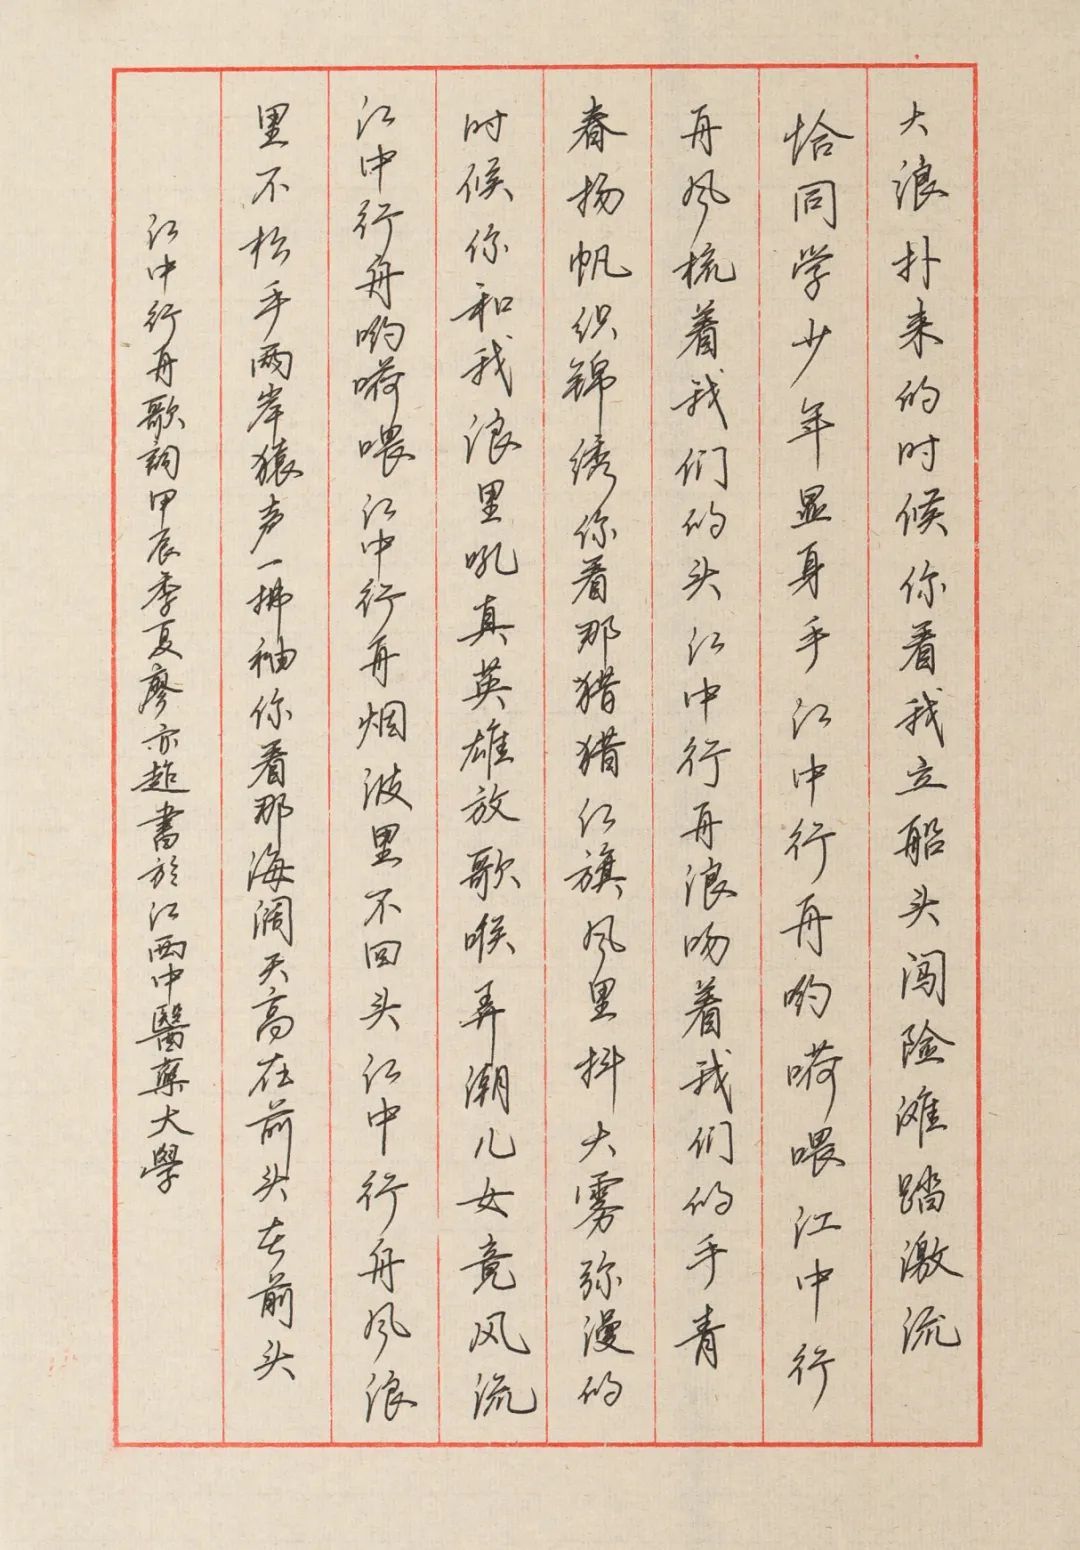 大浪扑来的时候你看我立船头闯险滩踏激流
恰同学少年显身手江中行舟哟嗬喂江中行
舟风梳着我们的头江中行舟浪吻着我们的手青
春扬帆织锦绣你看那猎猎红旗风里抖大雾弥漫的
时候你和我浪里吼真英雄放歌喉弄潮儿女竞风流
江中行舟哟嗬喂江中行舟烟波里不回头江中行舟风浪
里不松手两岸猿声一拂袖你看那海阔天高在前头在前头
江中行舟歌词甲辰季夏廖亦趂書於江西中醫藥大學